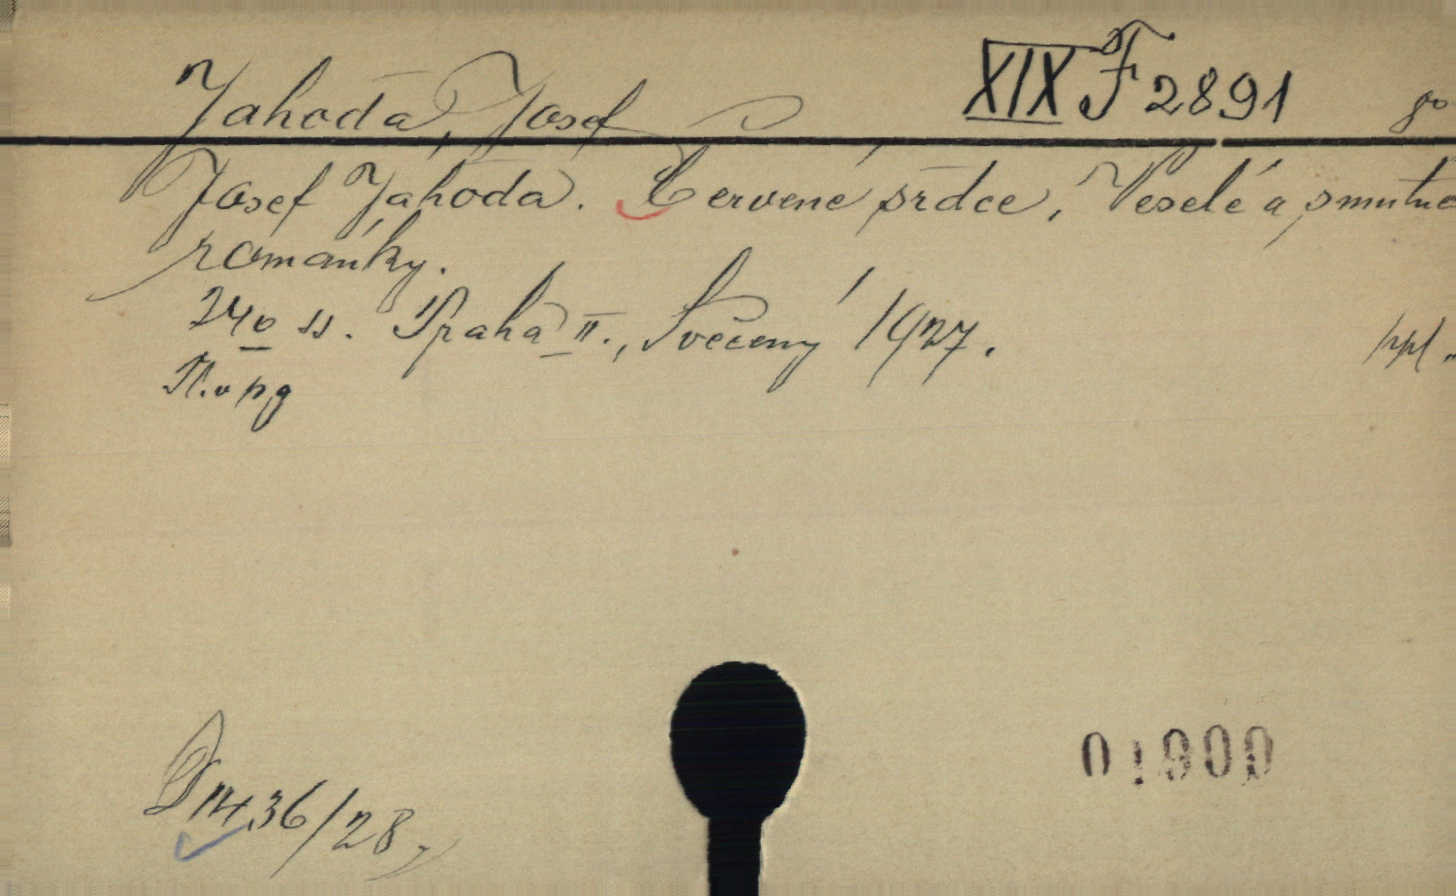 Jahoda, Josef XIX F 2891
Josef Jahoda. Červené srdce. Veselé a smutné
románky.
240 ss. Praha II., Svěcený 1927.
01900
36/28